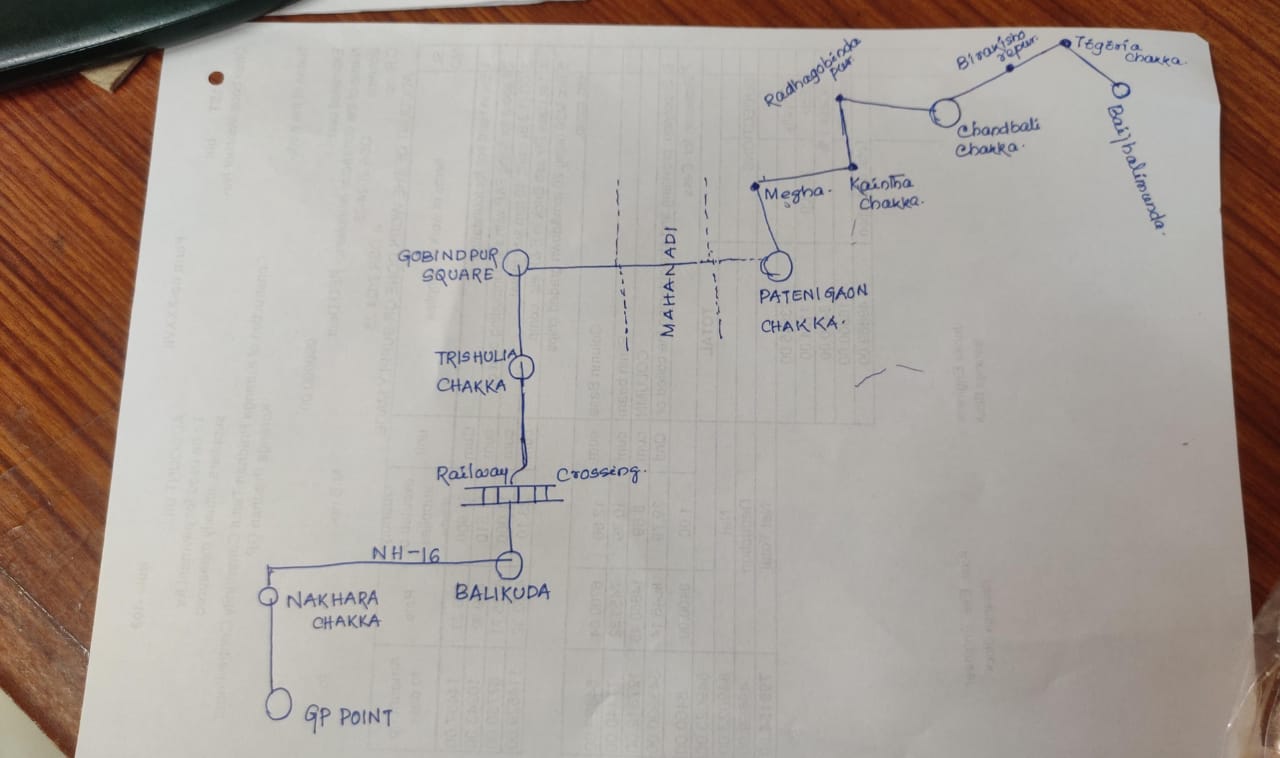 Radhagobinda
pur.
Birakisho
repur.
Tegeria
chakka.
Chandbali
Chakka.
Baijhalimunda.
Megha.
Kaintha
Chakka.
GOBINDPUR
SQUARE
MAHANADI
PATENIGAON
CHAKKA.
TRISHULIA
CHAKKA
Railway Crossing.
NH-16
BALIKUDA
NAKHARA
CHAKKA
GP POINT